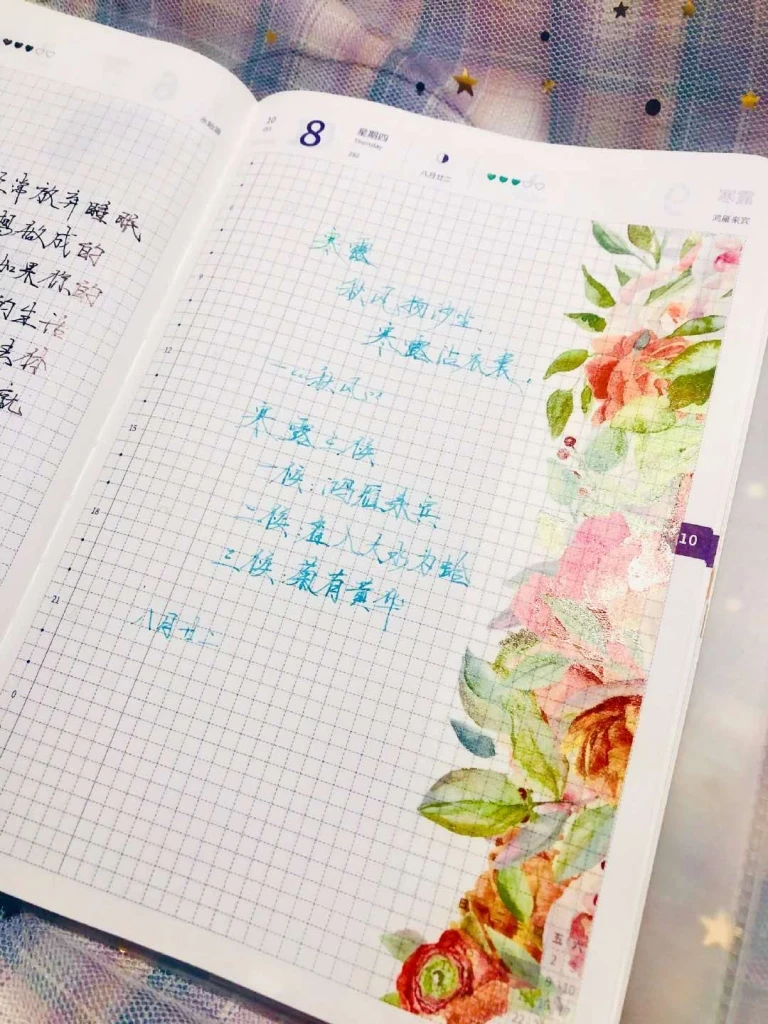 常放弃睡眠
做成的
如果你的
的生活
就
10
8
星期四
Thursday
282
八月廿二
寒露
鸿雁来宾
寒露
秋风扬沙尘.
寒露沾衣裳.
—《秋风》
寒露三候
一候:鸿雁来宾
二候:雀入大水为蛤
三候:菊有黄华
八月廿二
9
12
15
18
21
0
10
五 六
2
9 10